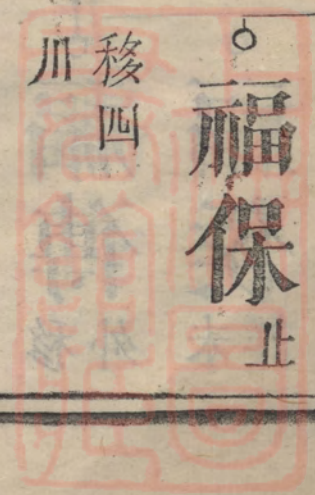 福保止
移四
川